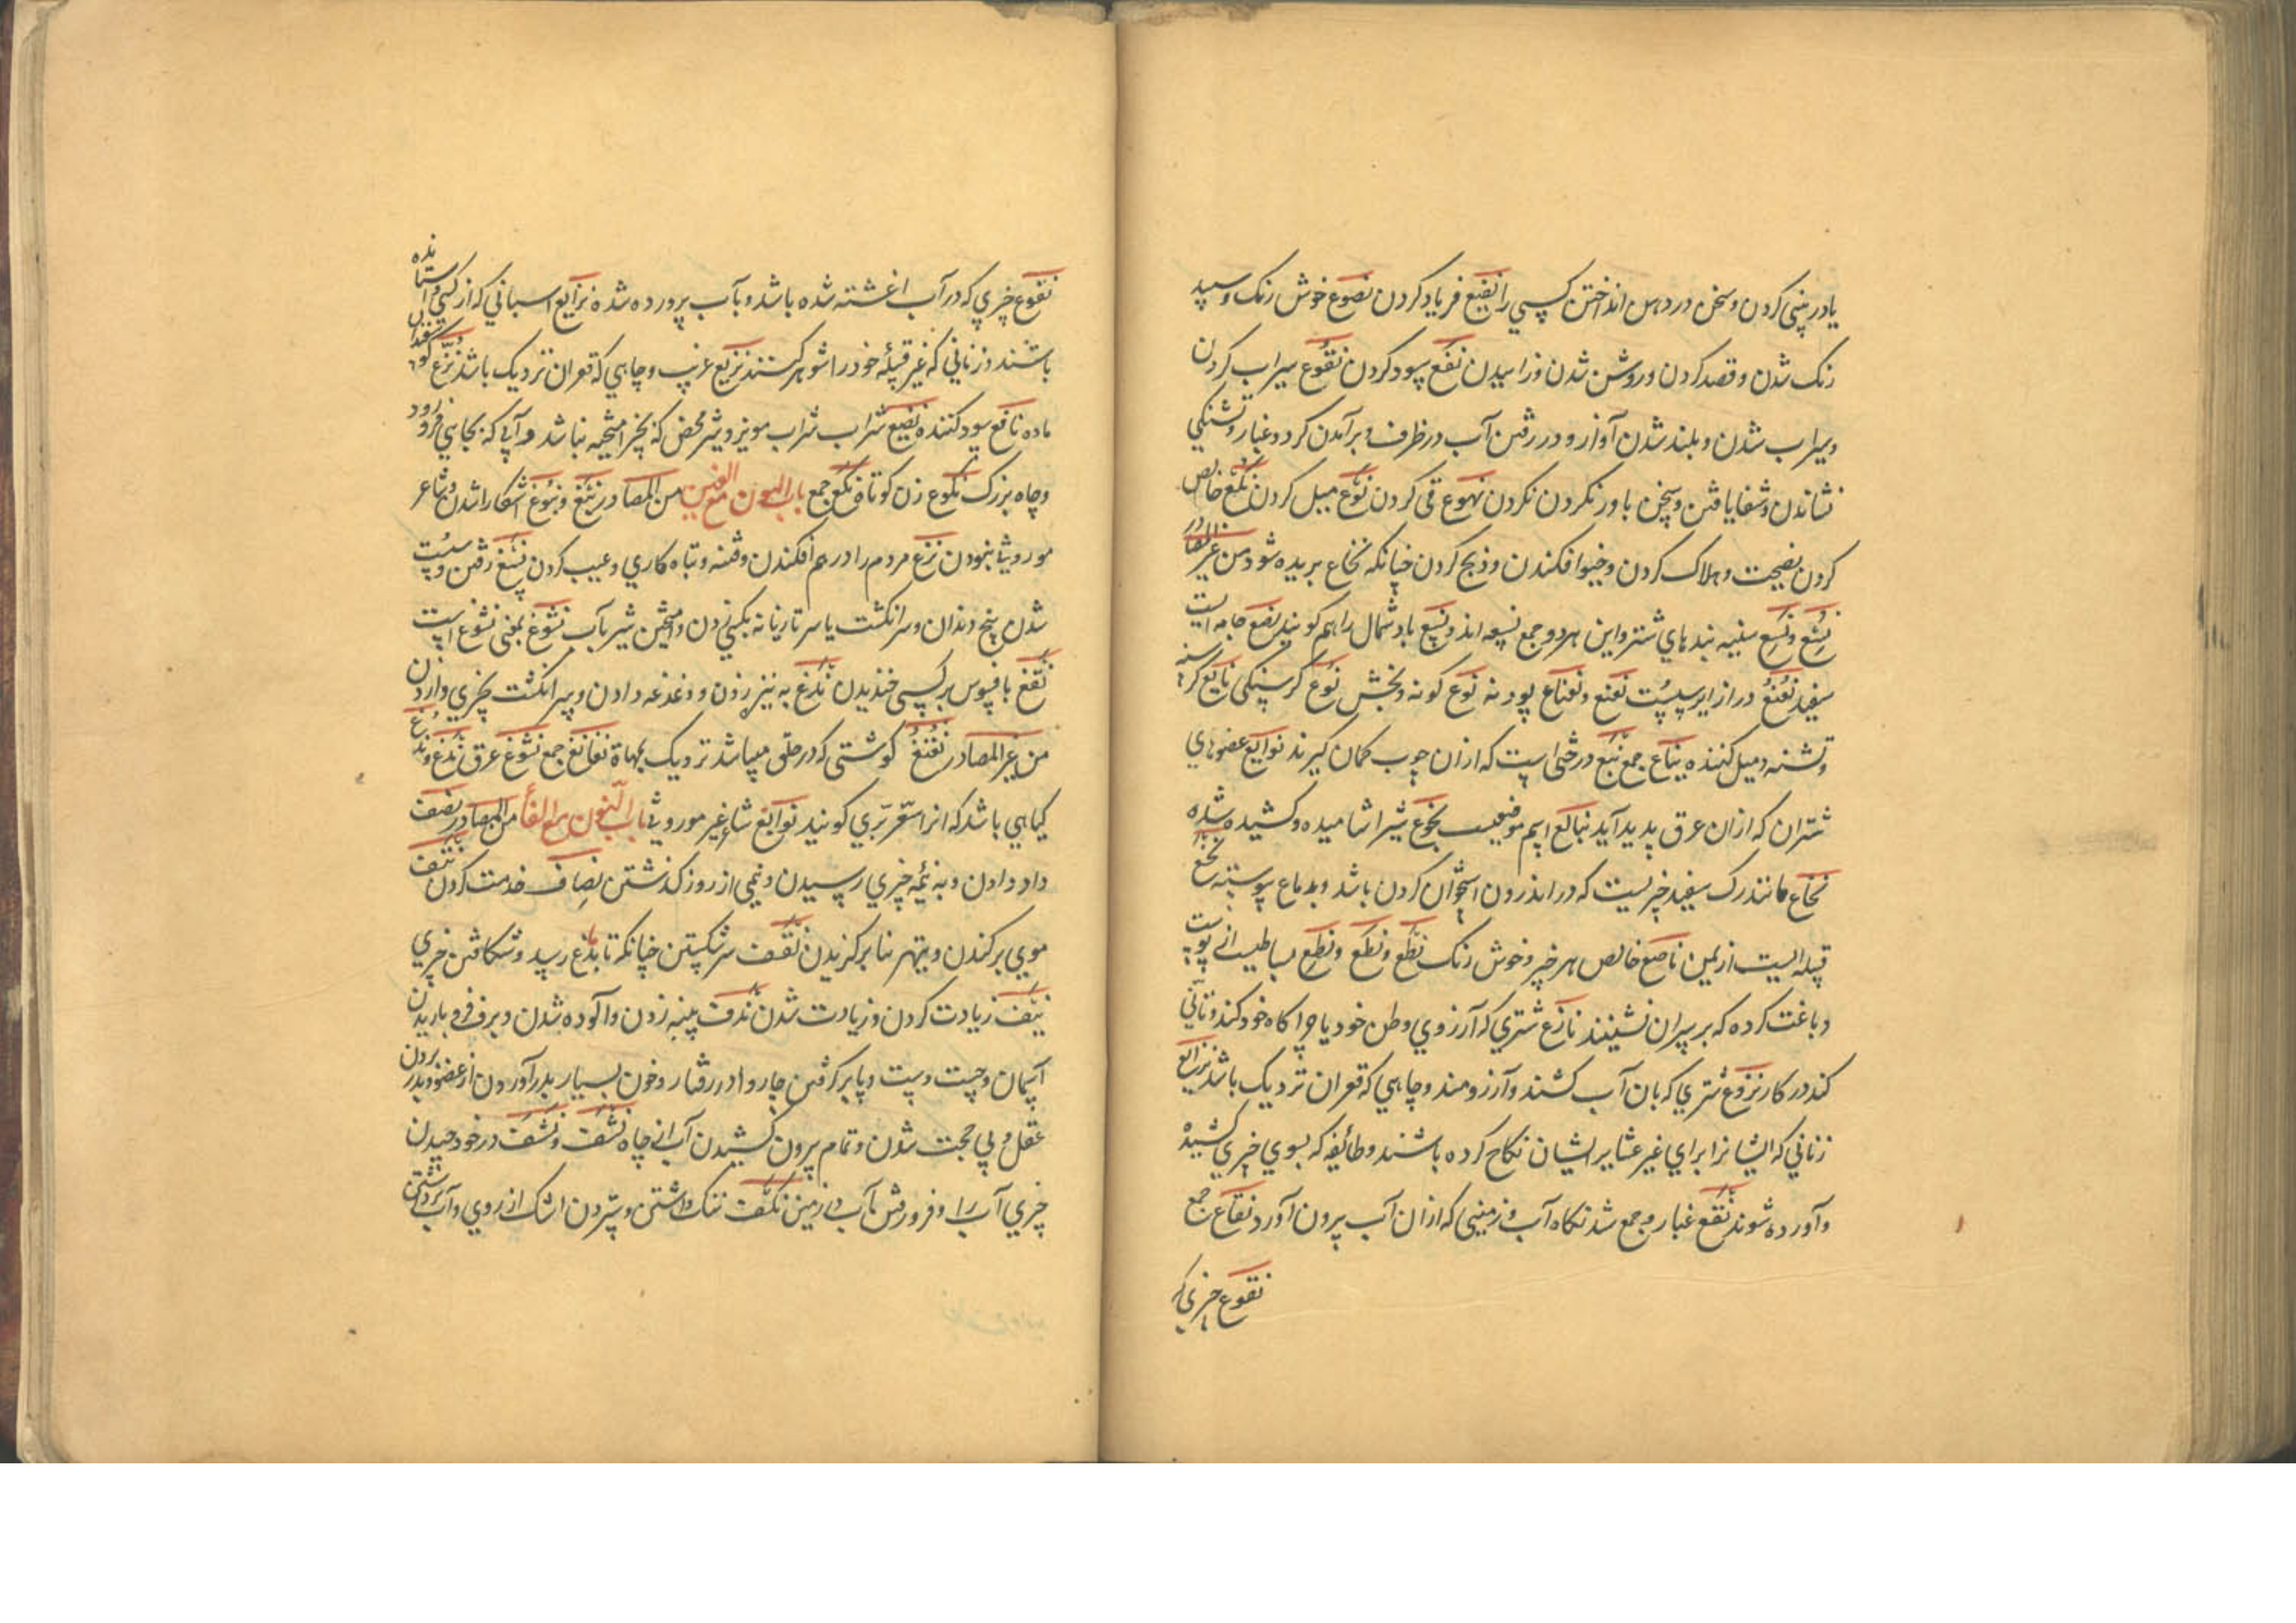 یا در بینی کردن و سخن در دهن انداختن کسی را نقیع فریاد کردن نصوع خوش رنک و سپید
رنک شدن و قصد کردن و روشن شدن و زاییدن نفع سود کردن نقوع سیراب کردن
و سیراب شدن و بلند شدن آواز و در رفتن آب در ظرف و برآمدن کرد و غبار و تشنکی
نشاندن و شفا یافتن و سخن باور نکردن نکردن نهوع قی کردن نوع میل کردن نخع خالص
کردن نصیحت و هلاک کردن و خیو افکندن و ذبح کردن چنانکه نخاع بریده شود من غیر المصادر
نسع و نسع سینه بندهای شتر و این هر دو جمع نسعه اند و نسع باد شمال را هم کویند نصع جامه ایست
سفید نعنع دراز ایر سست نعنع و نعناع پودنه نوع کونه و بخش نوع کرسنکی نایع کرسنه
و تشنه و میل کننده نباع جمع نبع درختی است که از ان چوب کمان کیرند نوابع عضوهای
شتران که از ان عرق پدید آید نبایع اسم موضعیست نجوع شیر اشامیده و کشیده شده
نخاع مانند رک سفید چیزیست که در اندرون استخوان کردن باشد و بدماغ پیوسته نخع
قبیله ایست از یمن ناصع خالص هر چیز و خوش رنک نطع و نطع و نطع بساطیست از پوست
دباغت کرده که بر سر ان نشینند نازع شتری که آرزوی وطن خود یا چراکاه خود کند و تأنی
کند در کار نزوع شتری که بان آب کشند و آرزومند و چاهی که قعر ان نزدیک باشد نزایع
زنانی که ایشانرا برای غیر عشایر ایشان نکاح کرده باشند و طائفه که بسوی چیزی کشیده
و آورده شوند نقع غبار و جمع شدنکاه آب و زمینی که از ان آب بیرون آورد نقاع جمع
نقوع چیزی که
نقوع چیزی که در آب اغشته شده باشد و بآب پرورده شده نزایع اسبانی که از کسی واستانده
باشند و زنانی که غیر قبیله خود را شوهر کنند نزیع غریب و چاهی که قعر ان نزدیک باشد نزع
ماده نافع سود کننده نقیع شراب شراب مویز و شیر محض که بچیز امیخته نباشد و آبی که بجایی فرو رود
و چاه بزرک نکوع زن کوتاه نکع جمع باب النون مع الغین من المصادر نبغ و نبوغ آشکارا شدن و شاعر
موروثی نبودن نزغ مردم را در هم افکندن و فتنه و تباه کاری و عیب کردن نسغ رفتن و سست
شدن بیخ دندان و سر انکشت یا سر تازیانه بکسی زدن و آمیختن شیر بآب نشوغ بمعنی نشوع است
نتغ بافسوس بر کسی خندیدن ندغ به نیزه زدن و دغدغه دادن و بسر انکشت چیزی وازدن
من غیر المصادر نغنغ کوشتی که در حلق میباشد نزدیک بلهاة نغانغ جمع نشوغ عرق ندغ و ندغ
کیاهی باشد که انرا سعتر بری کویند نوابغ شاعر غیر موروثی باب النون مع الفاء من المصادر نصف
داد دادن و به نیمه چیزی رسیدن و نیمی از روز کذشتن نصاف خدمت کردن نتف
موی برکندن و بهتر بنا برکزیدن نقف سر شکستن چنانکه تا بدماغ رسد و شکافتن چیزی
نیف زیادت کردن و زیادت شدن ندف پنبه زدن و آلوده شدن و برف فرو باریدن
آسمان و چست و دست و پا بر کرفتن چاروا در رفتار و خون بسیار بدر آوردن از عضو و بدر بردن
عقل و بی حجت شدن و تمام بیرون کشیدن آب از چاه نشف و نشف در خود چیدن
چیزی آب را و فرو رفتن آب در زمین نکف ننک داشتن و ستردن اشک از روی و آب برداشتن